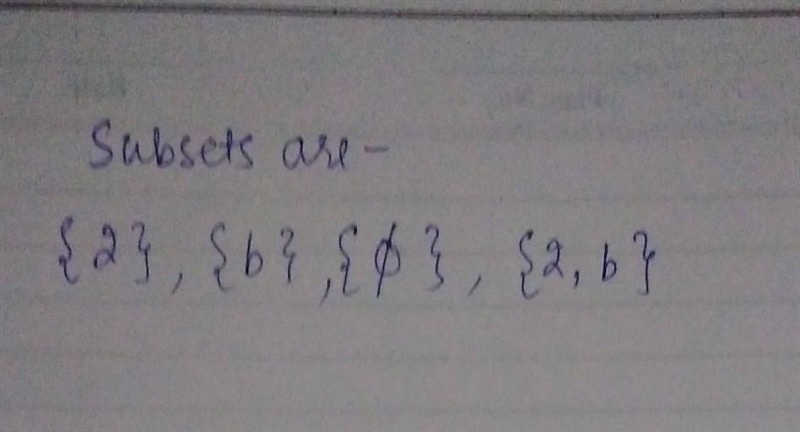 Subsets are -
{2}, {b}, {φ}, {2, b}